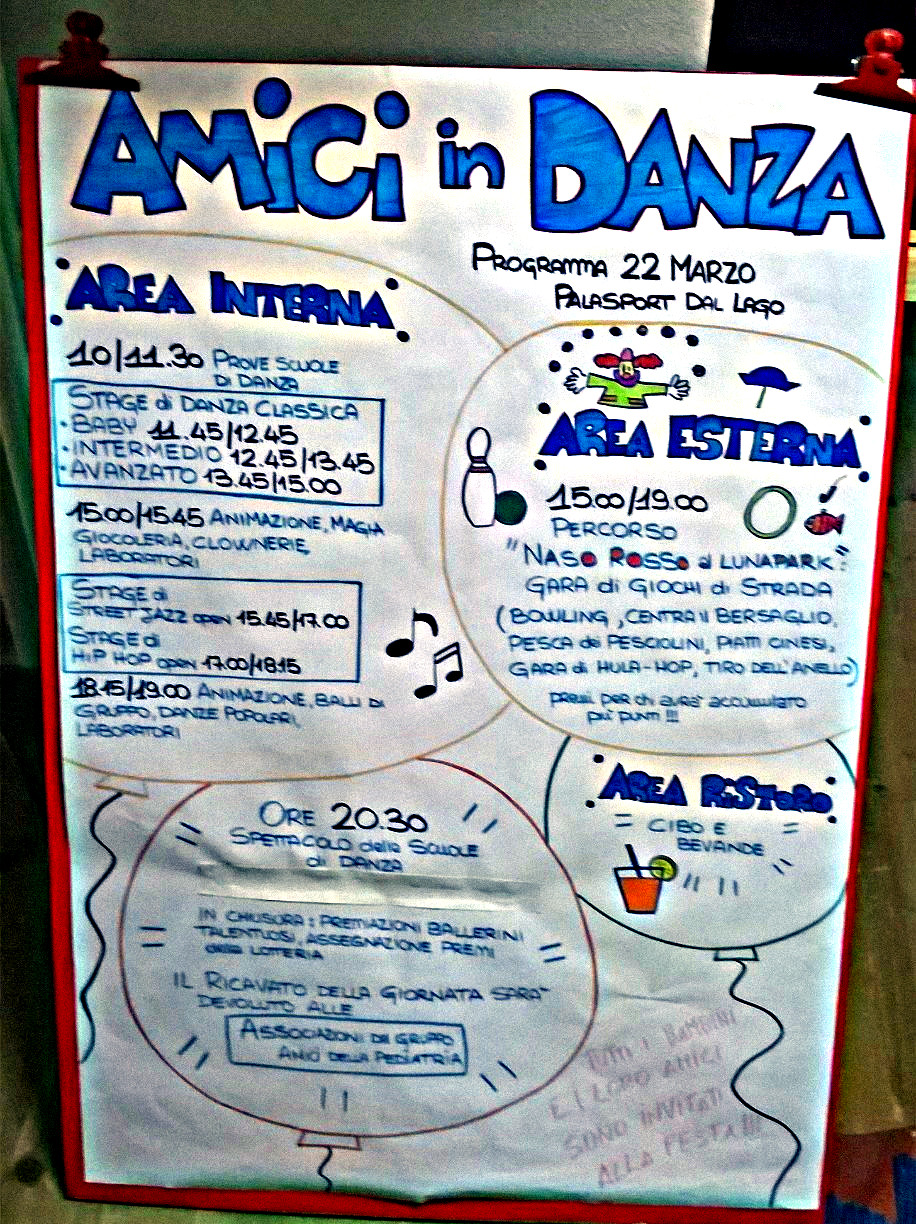 AMiCi in DANZA
PROGRAMMA 22 MARZO
PALASPORT DAL LAGO
AREA INTERNA
10/11.30 PROVE SCUOLE
DI DANZA
STAGE di DANZA CLASSICA
• BABY 11.45/12.45
• INTERMEDIO 12.45/13.45
• AVANZATO 13.45/15.00
15.00/15.45 ANIMAZIONE, MAGIA
GIOCOLERIA, CLOWNERIE,
LABORATORI
STAGE di
STREET JAZZ OPEN 15.45/17.00
STAGE di
HIP HOP OPEN 17.00/18.15
18.15/19.00 ANIMAZIONE, BALLI DI
GRUPPO, DANZE POPOLARI,
LABORATORI
AREA ESTERNA
15.00/19.00
PERCORSO
"NASO ROSSO al LUNAPARK":
GARA di GIOCHI di STRADA
(BOWLING, CENTRA il BERSAGLIO,
PESCA dei PESCIOLINI, PIATTI CINESI,
GARA di HULA-HOP, TIRO DELL'ANELLO)
premi per chi avrà accumulato
più punti !!!
AREA RiSTORO
CIBO E
BEVANDE
ORE 20.30
SPETTACOLO delle SCUOLE
di DANZA
IN CHIUSURA: PREMIAZIONI BALLERINI
TALENTUOSI, ASSEGNAZIONE PREMI
della LOTTERIA
IL RICAVATO DELLA GIORNATA SARA'
DEVOLUTO ALLE
ASSOCIAZIONI DEL GRUPPO
AMICI DELLA PEDIATRIA
TUTTI I BAMBINI
E I LORO AMICI
SONO INVITATI
ALLA FESTA!!!